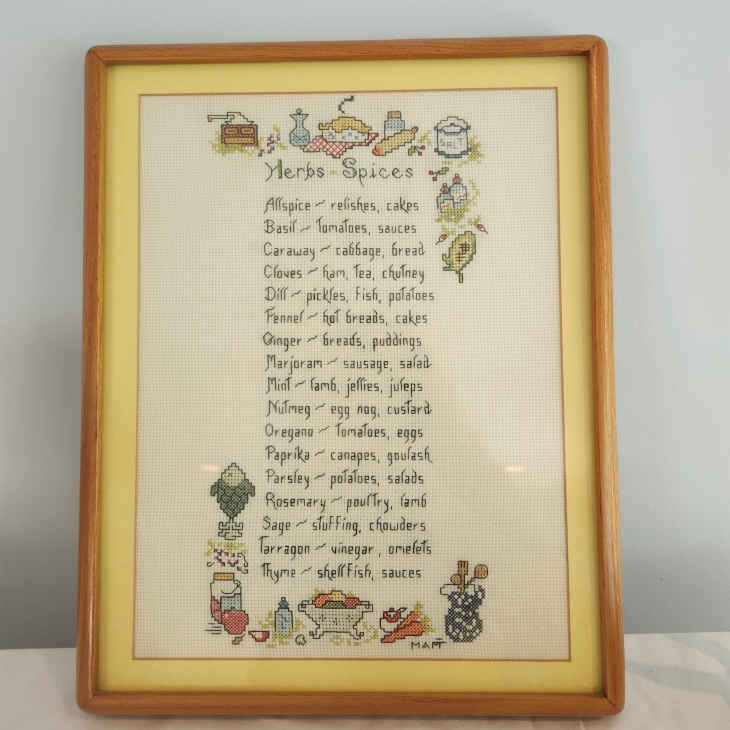 Herbs - Spices
Allspice ~ relishes, cakes
Basil ~ tomatoes, sauces
Caraway ~ cabbage, bread
Cloves ~ ham, tea, chutney
Dill ~ pickles, fish, potatoes
Fennel ~ hot breads, cakes
Ginger ~ breads, puddings
Marjoram ~ sausage, salad
Mint ~ lamb, jellies, juleps
Nutmeg ~ egg nog, custard
Oregano ~ tomatoes, eggs
Paprika ~ canapes, goulash
Parsley ~ potatoes, salads
Rosemary ~ poultry, lamb
Sage ~ stuffing, chowders
Tarragon ~ vinegar, omelets
Thyme ~ shellfish, sauces